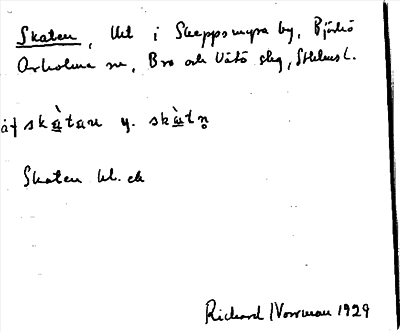 Skaten, Ut i Skeppsmyra by, Björkö
Arholma sn, Bro och Vätö slg, Sthlms l.
åf skàtan y. skàtn̥
Skaten ut. ek
Richard Norrman 1929